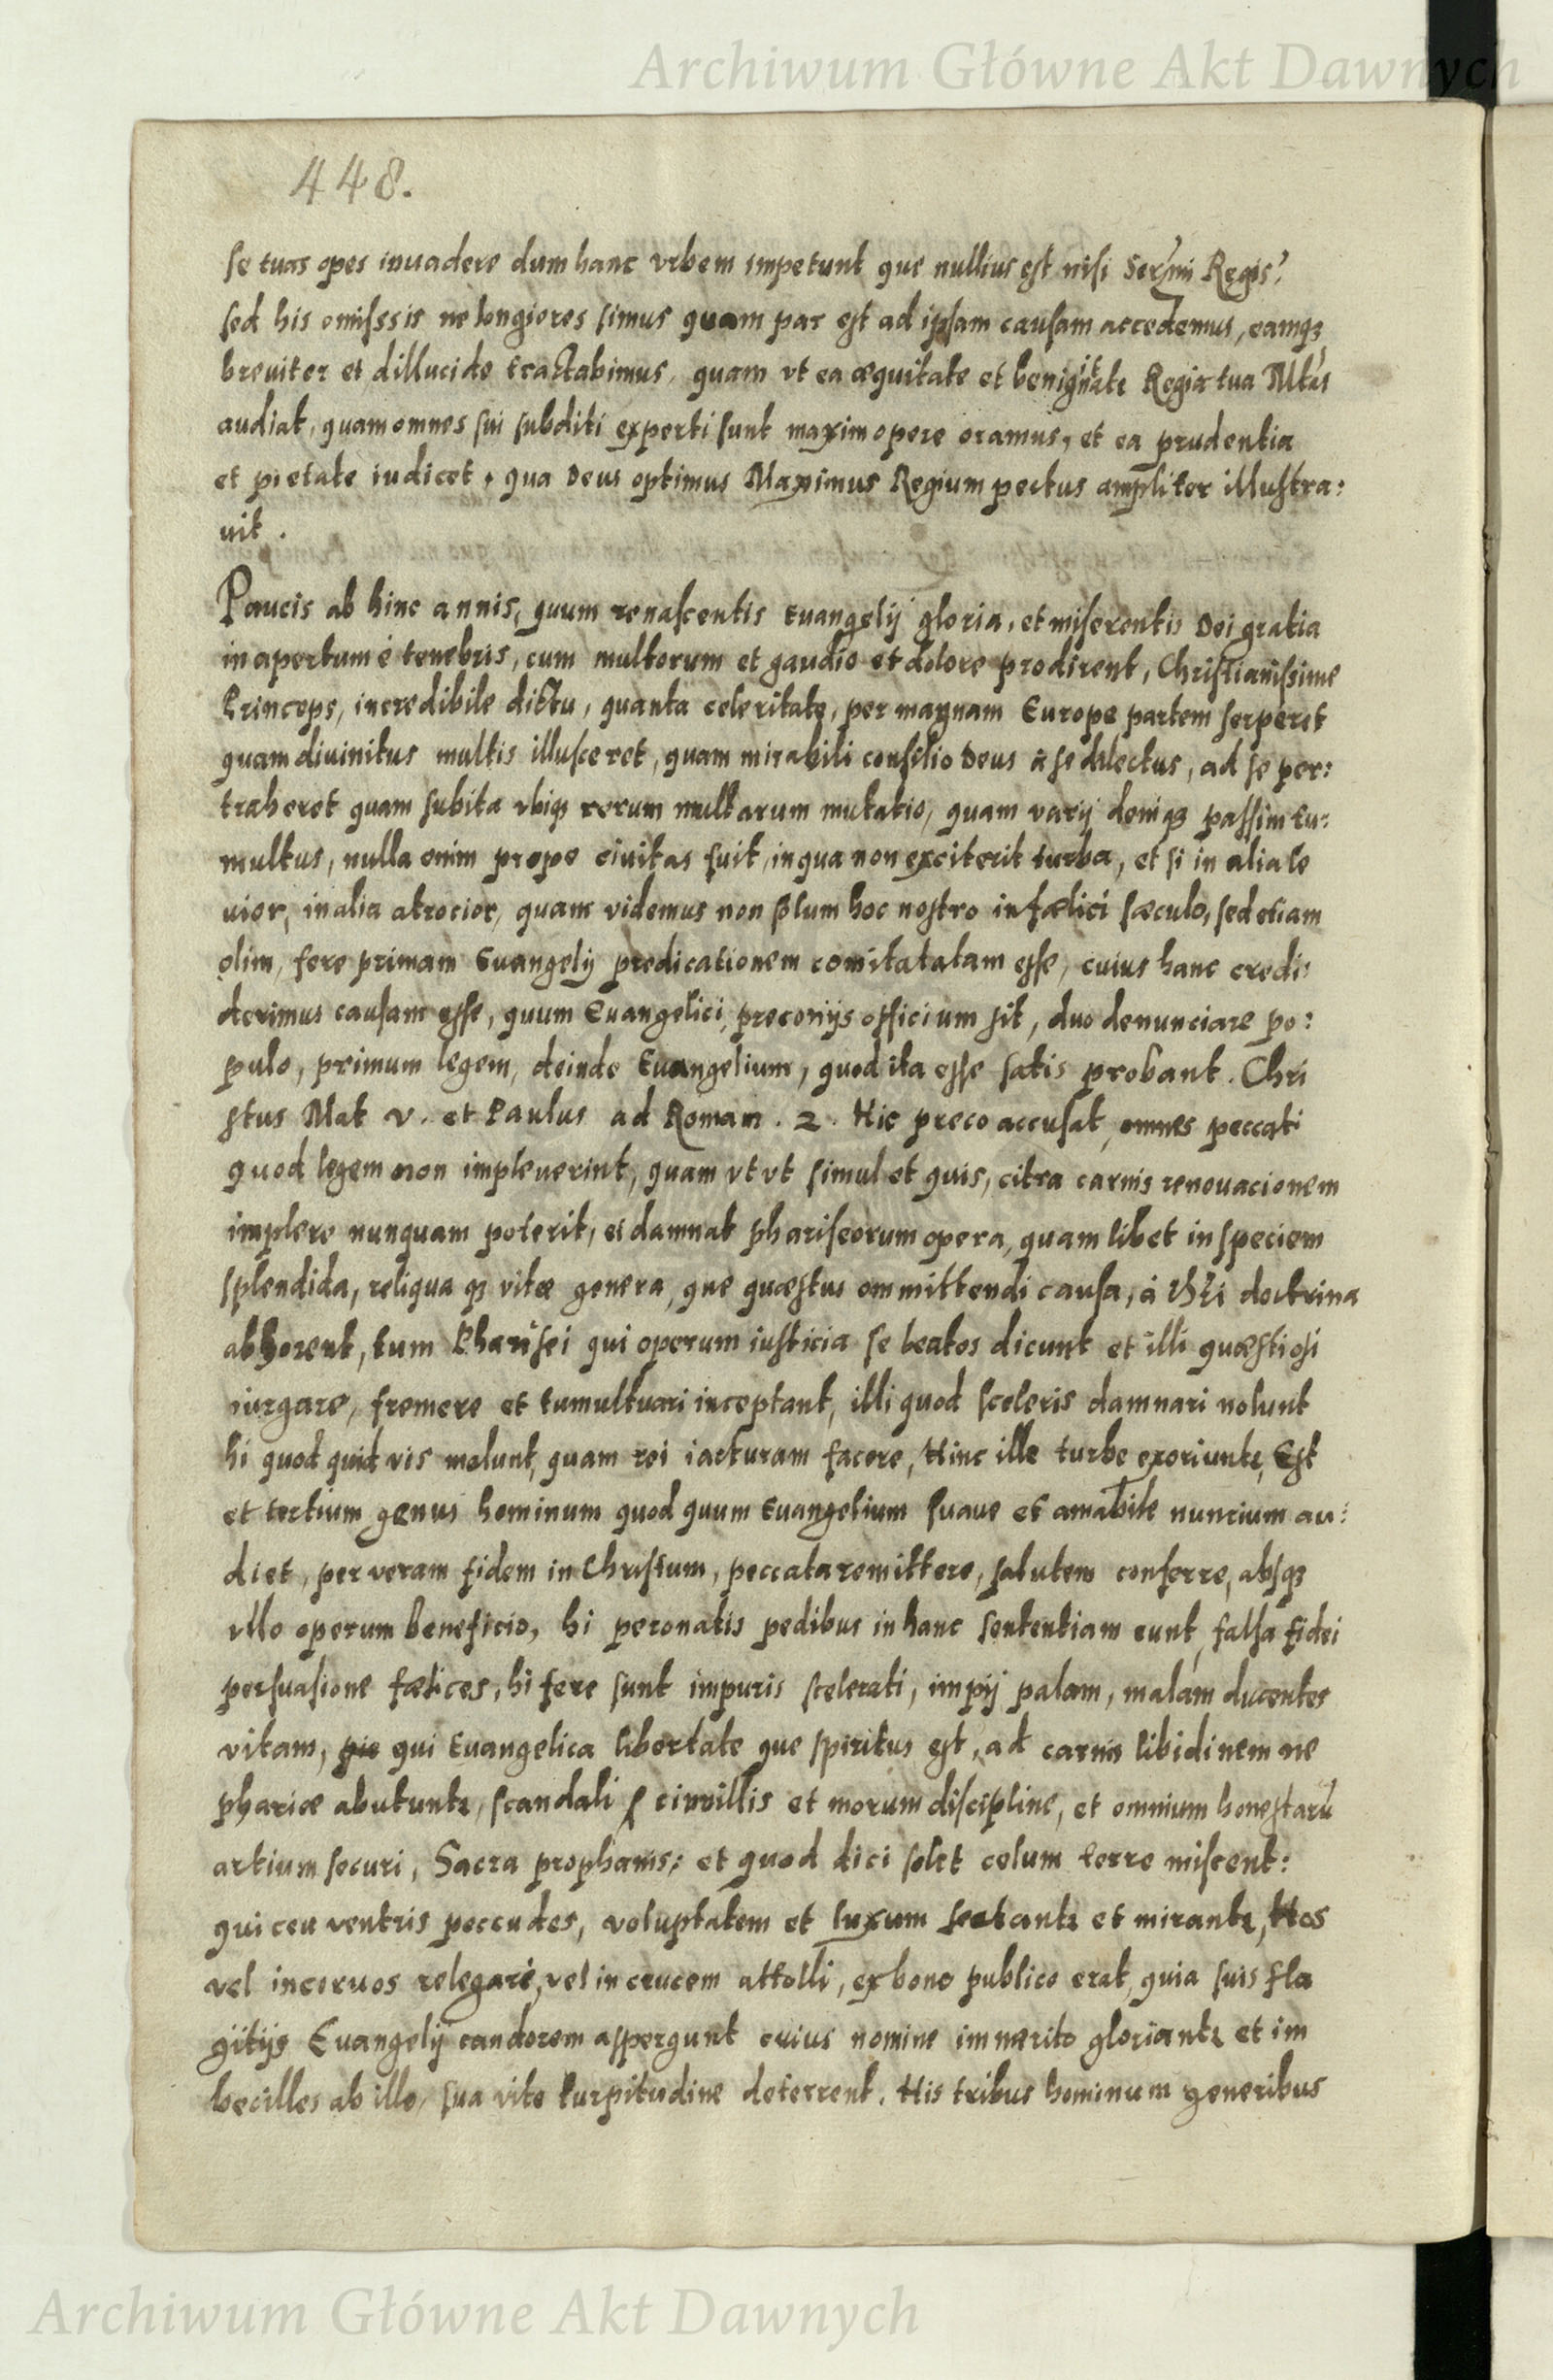 Archiwum Główne Akt Dawnych
448.
se tuas opes inuadere dum hanc vrbem impetunt que nullius est nisi Sermi Regis?
sed his omissis ne longiores simus quam par est ad ipsam causam accedemus, eamqȝ
breuiter et dillucide tractabimus, quam vt ea æquitate et benignitate Regia tua Mtas
audiat, quam omnes sui subditi experti sunt maximopere oramus, et ea prudentia
et pietate iudicet, qua Deus optimus Maximus Regium pectus ampliter illustra:
uit.
Paucis ab hinc annis, quum renascentis Euangelij gloria, et miserentis Dei gratia
in apertum è tenebris, cum multorum et gaudio et dolore prodirent, Christianissime
Princeps, incredibile dictu, quanta celeritate, per magnam Europe partem serperet
quam diuinitus multis illusceret, quam mirabili consilio Deus à se dilectus, ad se per:
traheret quam subita vbiqȝ rerum multarum mutatio, quam varij deniqȝ passim tu:
multus, nulla enim prope ciuitas fuit, in qua non exciterit turba, et si in alia le
uior, in alia atrocior, quam videmus non solum hoc nostro infælici sæculo, sed etiam
olim, fere primam Euangelij predicationem comitatatam esse, cuius hanc credi:
derimus causam esse, quum Euangelici preconijs officium sit, duo denunciare po:
pulo, primum legem, deinde Euangelium, quod ita esse satis probant. Chri
stus Mat v. et Paulus ad Roman. 2. Hic preco accusat, omnes peccati
quod legem non impleuerint, quam vt vt simulet quis, citra carnis renouacionem
implere nunquam poterit, et damnat phariseorum opera, quam libet in speciem
splendida, reliqua qȝ vitæ genera, que quæstus ommittendi causa, à Chri doctrina
abhorent, tum Pharisei qui operum iusticia se beatos dicunt et illi quæstiosi
iurgare, fremere et tumultuari inceptant, illi quod sceleris damnari nolunt
hi quod quid vis malunt, quam rei iacturam facere, Hinc ille turbe exoriuntr, Est
et tertium genus hominum quod quum Euangelium suaue et amabile nuncium au:
diet, per veram fidem in Christum, peccata remittere, salutem conferre, absqȝ
vllo operum beneficio, hi peronatis pedibus in hanc sententiam eunt, falsa fidei
persuasione fælices, hi fere sunt impuris scelerati, impij palam, malam ducentes
vitam, qui Euangelica libertate que spiritus est, ad carnis libidinem ne
phariæ abutuntr, scandali ciuillis et morum discipline, et omnium honestarū
artium securi, Sacra prophanis: et quod dici solet celum terre miscent:
qui ceu ventris peccudes, voluptatem et luxum sectantr et mirantr, Hos
vel in coruos relegare, vel in crucem attolli, ex bono publico erat, quia suis fla
gitijs Euangelij candorem aspergunt cuius nomine immerito gloriantr et im
becilles ab illo, sua vite turpitudine deterrent. His tribus hominum generibus
Archiwum Główne Akt Dawnych